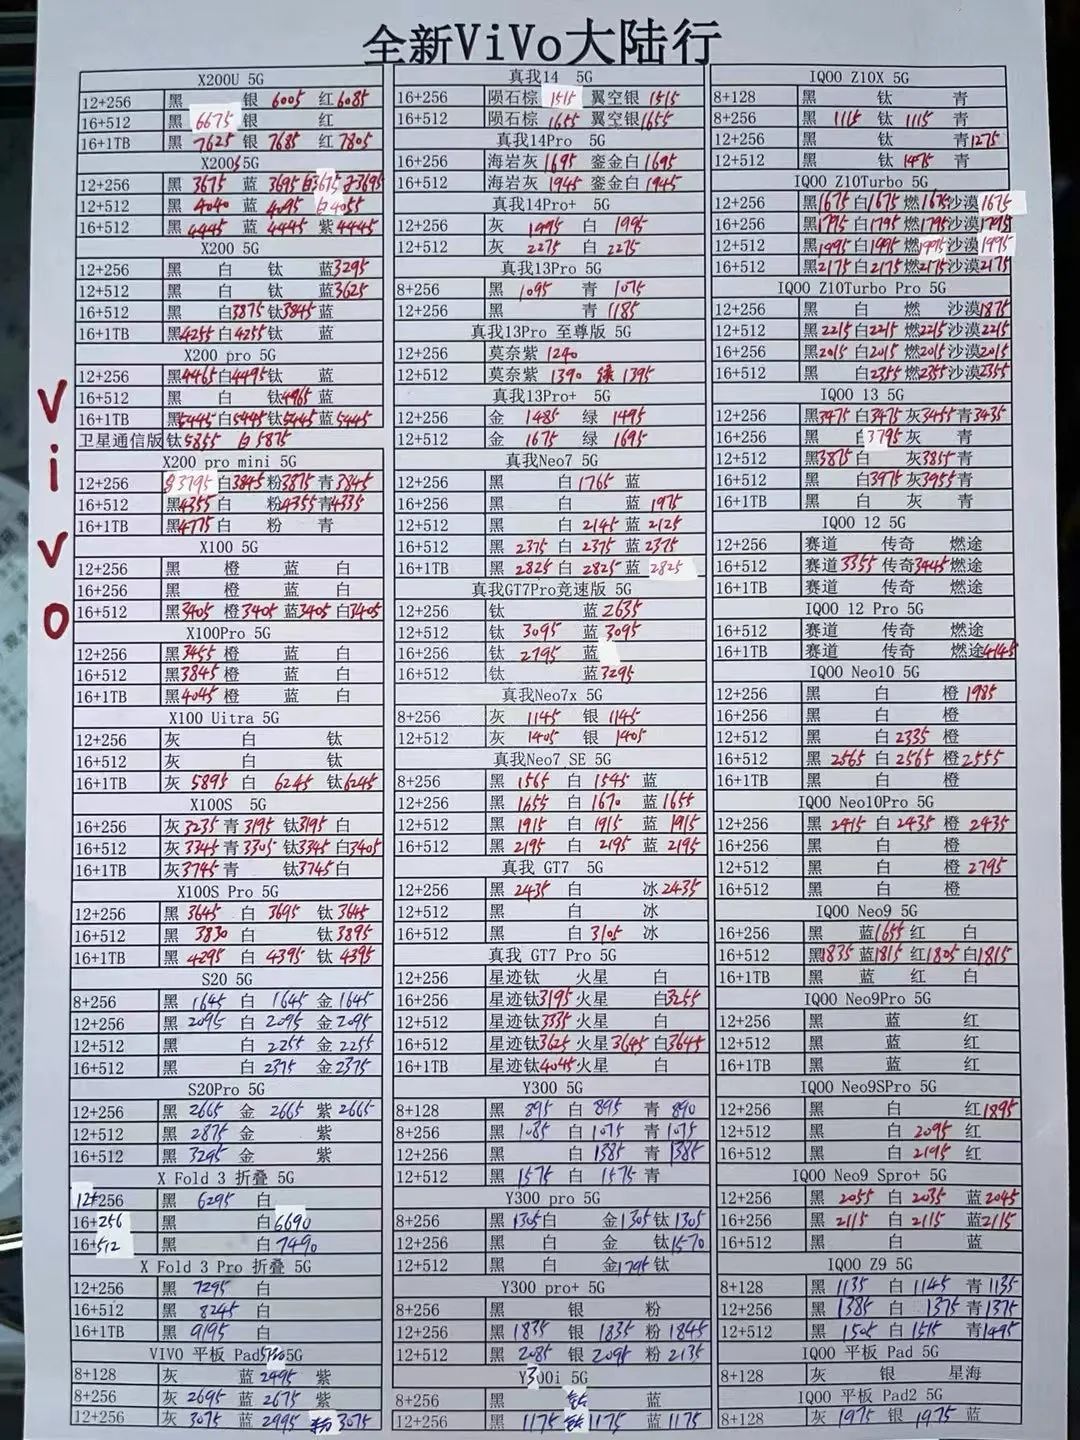 全新ViVo大陆行
ViVo
X200U 5G
12+256 黑 银 6005 红 6085
16+512 黑 6675 银 红
16+1TB 黑 7625 银 7685 红 7805
X200S 5G
12+256 黑 3675 蓝 3695 白3675 3695
12+512 黑 4040 蓝 4095 白4055
16+512 黑 4445 蓝 4445 紫 4445
X200 5G
12+256 黑 白 钛 蓝3295
12+512 黑 白 钛 蓝3625
16+512 黑 白3875 钛3845 蓝
16+1TB 黑4255 白4255 钛 蓝
X200 pro 5G
12+256 黑4465 白4495 钛 蓝
16+512 黑 白 钛4965 蓝
16+1TB 黑5445 白5445 钛5445 蓝5445
卫星通信版 钛5855 白5875
X200 pro mini 5G
12+256 3795 白3845 粉3875 青3845
16+512 黑4355 白 粉4355 青4335
16+1TB 黑4775 白 粉 青
X100 5G
12+256 黑 橙 蓝 白
16+256 黑 橙 蓝 白
16+512 黑3405 橙3405 蓝3405 白3405
X100Pro 5G
12+256 黑3455 橙 蓝 白
16+512 黑3845 橙 蓝 白
16+1TB 黑4045 橙 蓝 白
X100 Uitra 5G
12+256 灰 白 钛
16+512 灰 白 钛
16+1TB 灰 5895 白 6245 钛6245
X100S 5G
16+256 灰3235 青3195 钛3195 白
16+512 灰3345 青3305 钛3345 白3405
16+1TB 灰3745 青 钛3745 白
X100S Pro 5G
12+256 黑 3645 白 3695 钛 3645
16+512 黑 3830 白 钛 3895
16+1TB 黑 4295 白 4395 钛 4395
S20 5G
8+256 黑 1645 白 1645 金 1645
12+256 黑 2095 白 2095 金 2095
12+512 黑 白 2255 金 2255
16+512 黑 白 2375 金 2375
S20Pro 5G
12+256 黑 2665 金 2665 紫 2665
12+512 黑 2875 金 紫
16+512 黑 3295 金 紫
X Fold 3 折叠 5G
12+256 黑 6295 白
16+256 黑 白6690
16+512 黑 白7490
X Fold 3 Pro 折叠 5G
12+256 黑 7295 白
16+512 黑 8245 白
16+1TB 黑 9195 白
VIVO 平板 Pad5Pro5G
8+128 灰 蓝 2495 紫
8+256 灰 2695 蓝 2675 紫
12+256 灰 3075 蓝 2995 3075
真我14 5G
16+256 陨石棕 1515 翼空银 1515
16+512 陨石棕 1655 翼空银1655
真我14Pro 5G
16+256 海岩灰 1695 銮金白 1695
16+512 海岩灰 1945 銮金白 1945
真我14Pro+ 5G
12+256 灰 1995 白 1995
12+512 灰 2275 白 2275
真我13Pro 5G
8+256 黑 1095 青 1075
12+256 黑 青 1185
真我13Pro 至尊版 5G
12+256 莫奈紫 1240
12+512 莫奈紫 1390 绿 1395
真我13Pro+ 5G
12+256 金 1485 绿 1495
12+512 金 1675 绿 1695
真我Neo7 5G
12+256 黑 白 1765 蓝
16+256 黑 白 蓝 1975
12+512 黑 白 2145 蓝 2125
16+512 黑 2375 白 2375 蓝 2375
16+1TB 黑 2825 白 2825 蓝 2825
真我GT7Pro竞速版 5G
12+256 钛 蓝 2635
12+512 钛 3095 蓝 3095
16+256 钛 2795 蓝
16+512 钛 蓝3295
真我Neo7x 5G
8+256 灰 1145 银 1145
12+512 灰 1405 银 1405
真我Neo7 SE 5G
8+256 黑 1565 白 1545 蓝
12+256 黑 1655 白 1670 蓝 1655
12+512 黑 1915 白 1915 蓝 1915
16+512 黑 2195 白 2195 蓝 2195
真我 GT7 5G
12+256 黑 2435 白 冰 2435
12+512 黑 白 冰
16+512 黑 白 3105 冰
真我 GT7 Pro 5G
12+256 星迹钛 火星 白
16+256 星迹钛3195 火星 白3255
12+512 星迹钛3335 火星 白
16+512 星迹钛3625 火星3645 白3645
16+1TB 星迹钛4045 火星 白
Y300 5G
8+128 黑 895 白 895 青 890
8+256 黑 1085 白 1075 青 1075
12+256 黑 白 1385 青 1385
12+512 黑 1575 白 1575 青
Y300 pro 5G
8+256 黑 1305 白 金1305 钛1305
12+256 黑 白 金 钛1570
12+512 黑 白 金1795 钛
Y300 pro+ 5G
8+256 黑 银 粉
12+256 黑 1835 银 1835 粉 1845
12+512 黑 2085 银 2095 粉 2135
Y300i 5G
8+256 黑 钛 蓝
12+256 黑 1175 钛 1175 蓝 1175
IQOO Z10X 5G
8+128 黑 钛 青
8+256 黑 1115 钛 1115 青
12+256 黑 钛 青1275
12+512 黑 钛 1475 青
IQOO Z10Turbo 5G
12+256 黑1675 白1675 燃1675 沙漠1675
16+256 黑1795 白1795 燃1795 沙漠1795
12+512 黑1995 白1995 燃1995 沙漠1995
16+512 黑2175 白2175 燃2175 沙漠2175
IQOO Z10Turbo Pro 5G
12+256 黑 白 燃 沙漠1875
12+512 黑2215 白2215 燃2215 沙漠2215
16+256 黑2015 白2015 燃2015 沙漠2015
16+512 黑 白2355 燃2355 沙漠2355
IQOO 13 5G
12+256 黑3475 白3475 灰3455 青3435
16+256 黑 白3795 灰 青
12+512 黑3875 白 灰3855 青
16+512 黑 白3975 灰3955 青
16+1TB 黑 白 灰 青
IQOO 12 5G
12+256 赛道 传奇 燃途
16+512 赛道 3355 传奇3445 燃途
16+1TB 赛道 传奇 燃途
IQOO 12 Pro 5G
16+512 赛道 传奇 燃途
16+1TB 赛道 传奇 燃途4145
IQOO Neo10 5G
12+256 黑 白 橙 1985
16+256 黑 白 橙
12+512 黑 白 2335 橙
16+512 黑 2565 白 2565 橙 2555
16+1TB 黑 白 橙
IQOO Neo10Pro 5G
12+256 黑 2415 白 2435 橙 2435
16+256 黑 白 橙
12+512 黑 白 橙 2795
16+512 黑 白 橙
IQOO Neo9 5G
16+256 黑 蓝1655 红 白
16+512 黑1835 蓝1815 红1805 白1815
16+1TB 黑 蓝 红 白
IQOO Neo9Pro 5G
12+256 黑 蓝 红
12+512 黑 蓝 红
16+1TB 黑 蓝 红
IQOO Neo9SPro 5G
12+256 黑 白 红1895
12+512 黑 白 2095 红
16+512 黑 白 2195 红
IQOO Neo9 Spro+ 5G
12+256 黑 2055 白 2035 蓝 2045
16+256 黑 2115 白 2115 蓝2115
16+512 黑 白 蓝
IQOO Z9 5G
8+128 黑 1135 白 1145 青 1135
12+256 黑 1385 白 1375 青 1375
12+512 黑 1505 白 1515 青1495
IQOO 平板 Pad 5G
8+128 灰 银 星海
IQOO 平板 Pad2 5G
8+128 灰 1975 银 1975 蓝